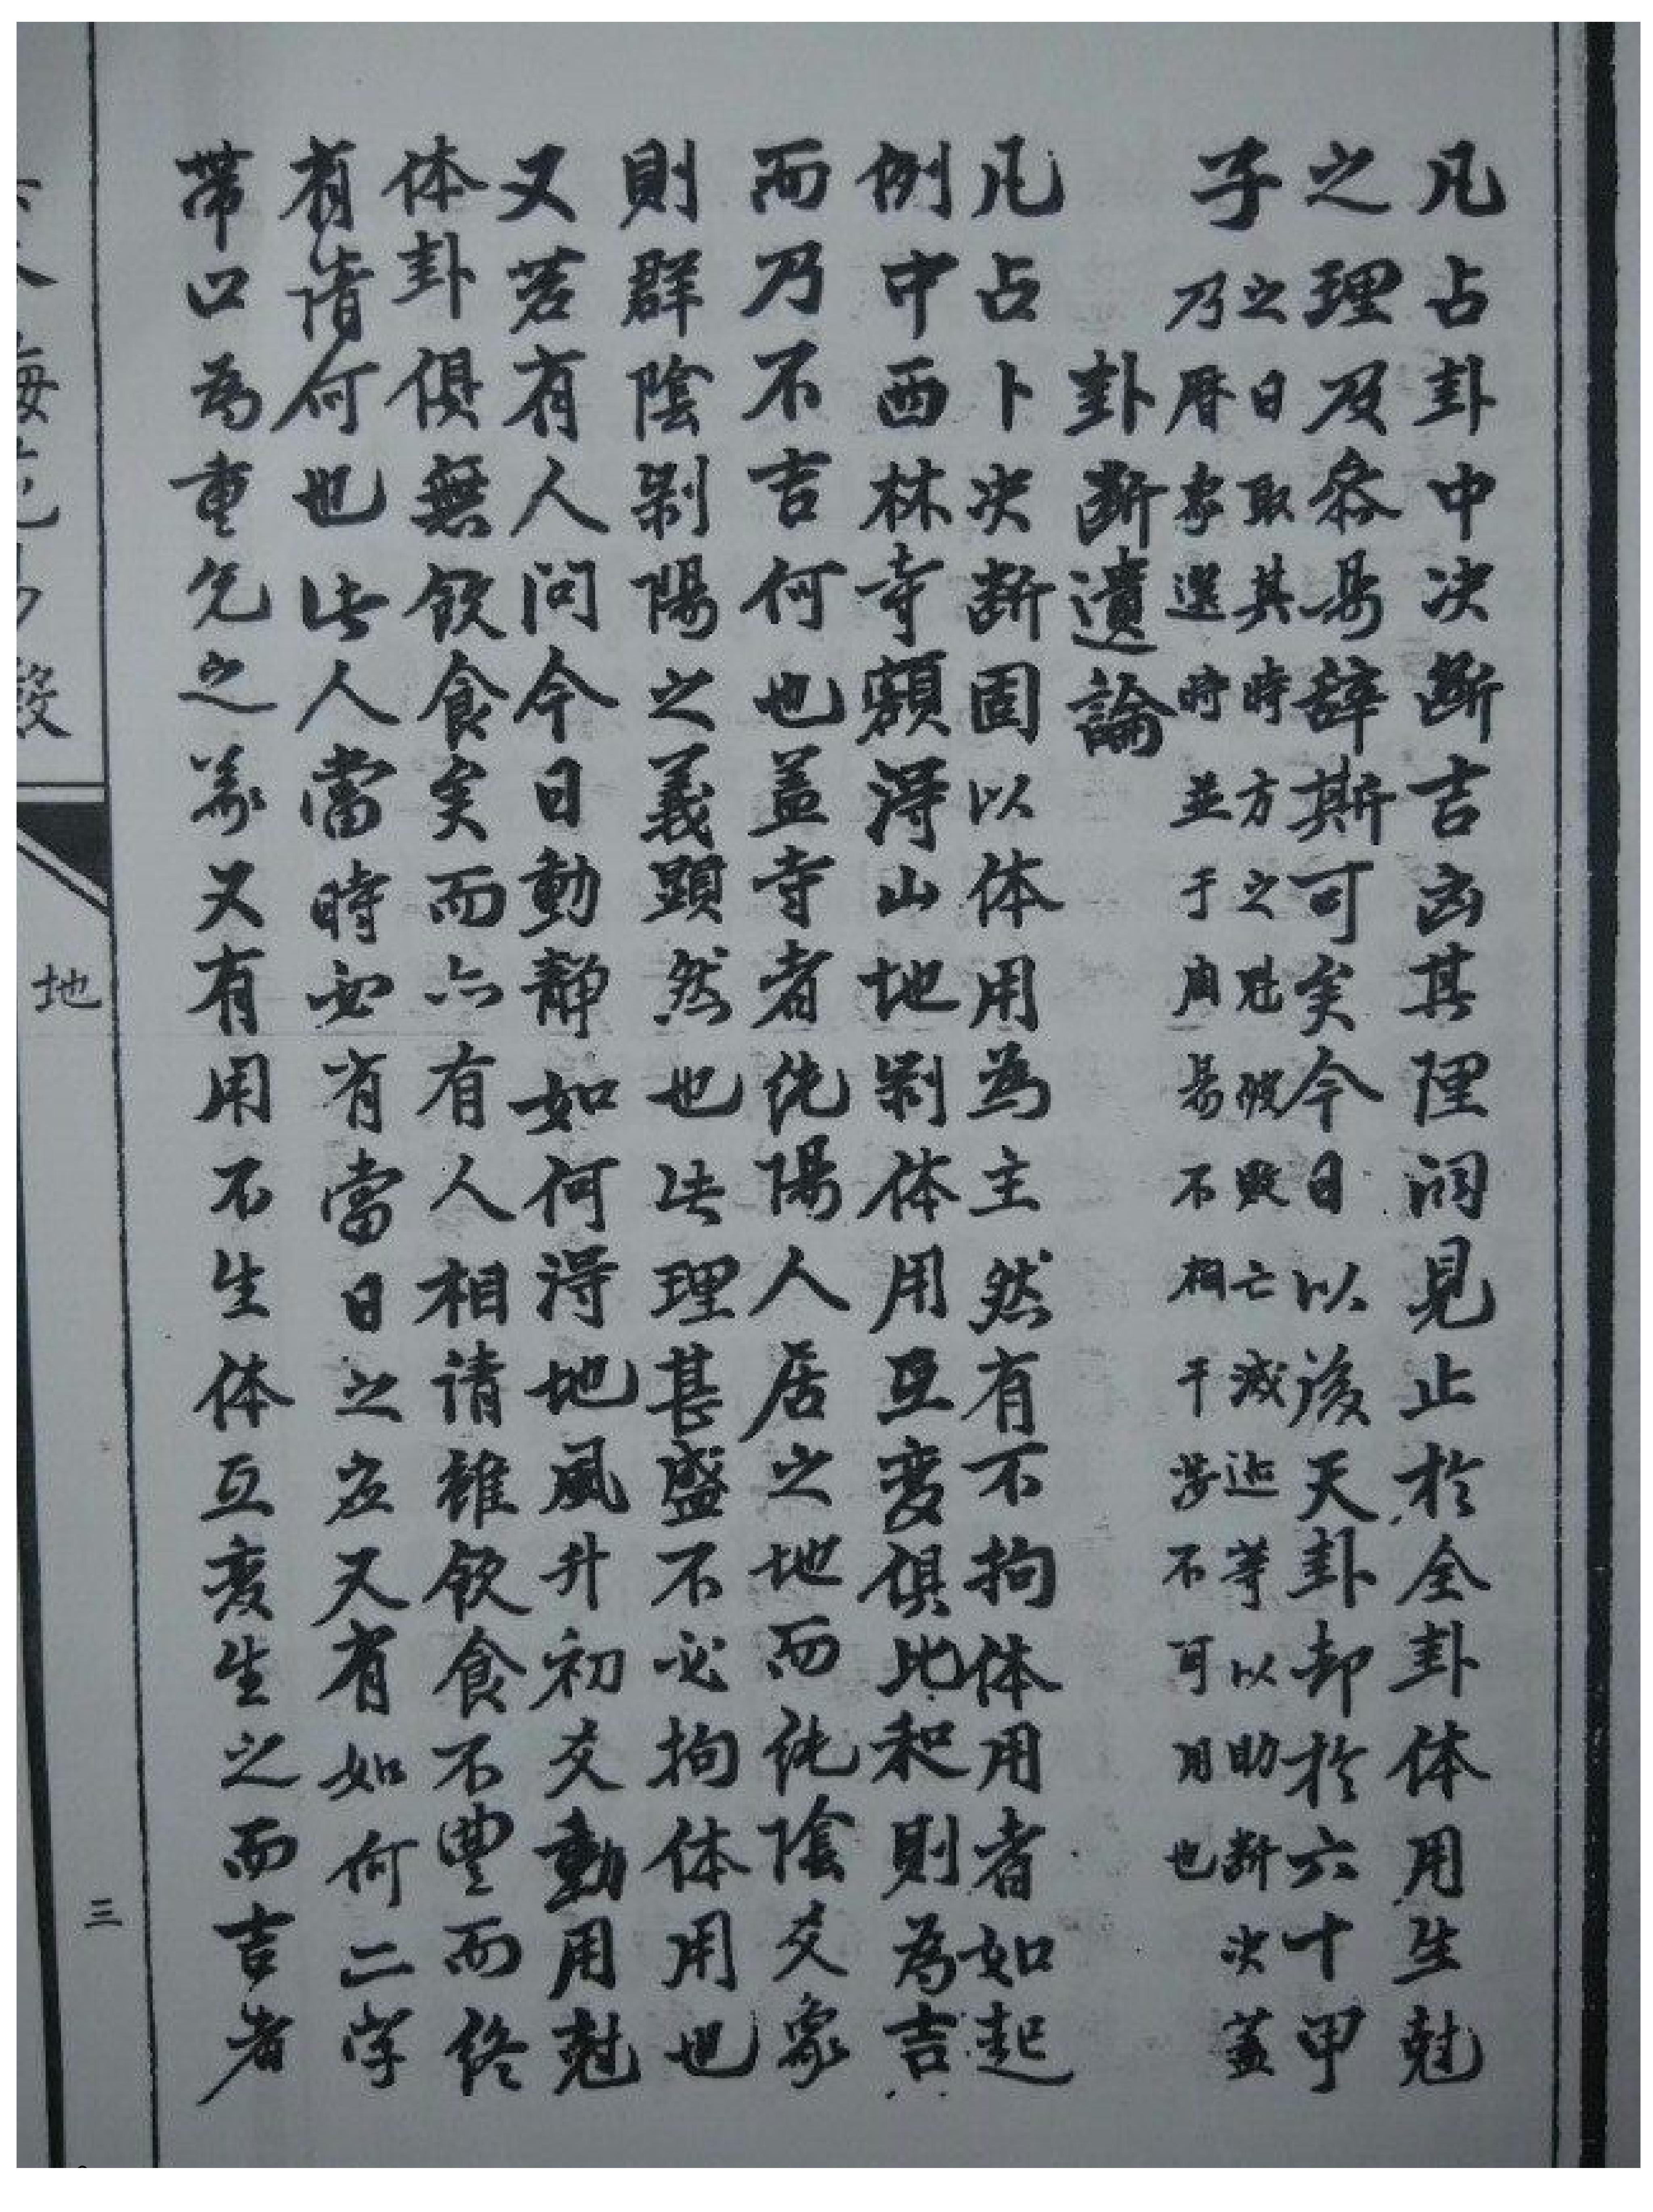 凡占卦中决断吉凶其理洞見止於全卦体用生尅
之理及叅易辞斯可矣今日以後天卦却於六十甲
子之日取其時方之尅破败亡减迯等以助断决蓋
乃暦家選時並于周易不相干㪯不可用也
卦断遺論
凡占卜决断固以体用為主然有不拘体用者如起
例中西林寺額得山地剥体用互变俱比和則為吉
而乃不吉何也盖寺者純陽人居之地而純陰爻象
則群陰剥陽之義顕然也此理甚盛不必拘体用也
又若有人问今日動静如何得地風升初爻動用尅
体卦俱無飲食矣而亦有人相请雖飲食不豐而終
有請何也此人當時必有當日之应又有如何二字
帯口為重兌之義又有用不生体互变生之而吉者
地
三